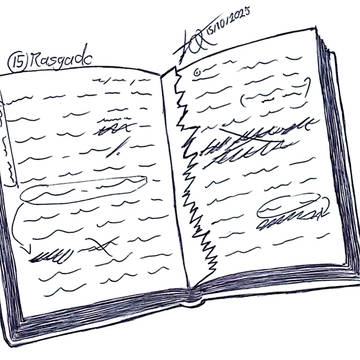 15 Rasgado
15/10/2025